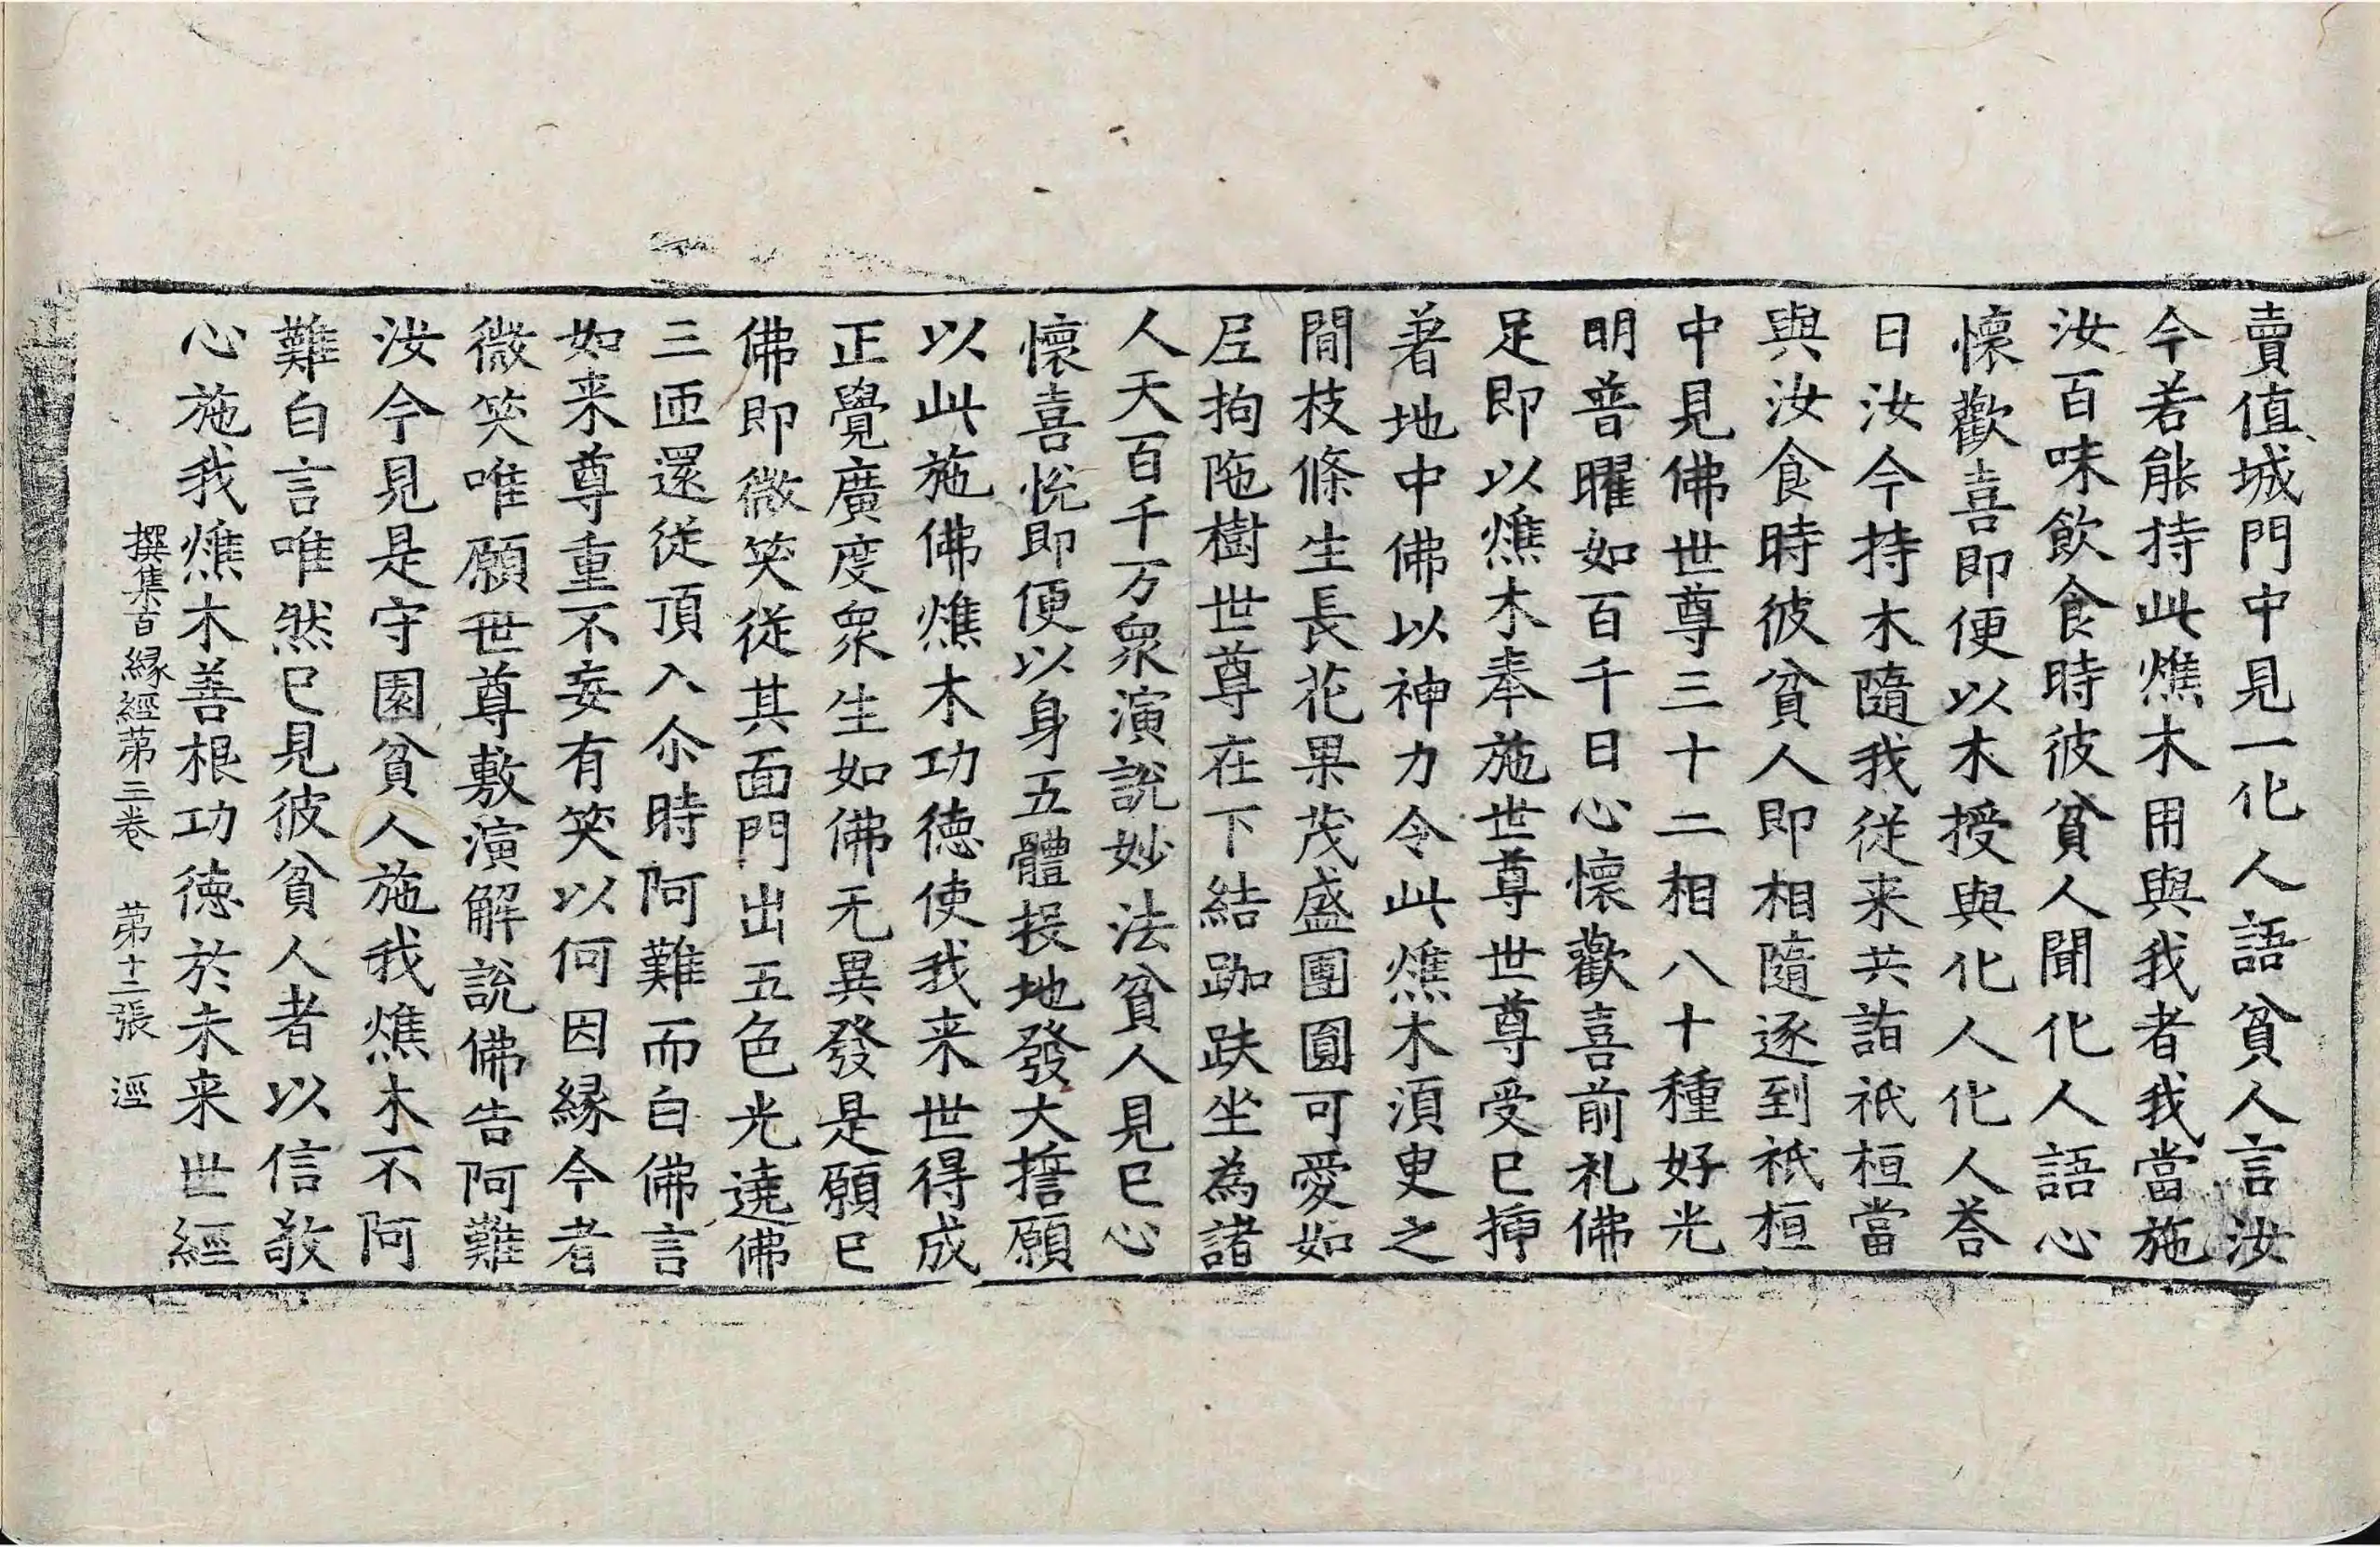 賣值城門中見一化人語貧人言汝
今若能持此燋木用與我者我當施
汝百味飲食時彼貧人聞化人語心
懷歡喜即便以木授與化人化人荅
曰汝今持木隨我從来共詣祇桓當
與汝食時彼貧人即相隨逐到祇桓
中見佛世尊三十二相八十種好光
明普曜如百千日心懷歡喜前礼佛
足即以燋木奉施世尊世尊受已揷
著地中佛以神力令此燋木湏臾之
閒枝條生長花果茂盛團圓可愛如
𡰱拘陁樹世尊在下結跏趺坐為諸
人天百千万衆演說妙法貧人見已心
懷喜悅即便以身五體投地發大誓願
以此施佛燋木功德使我来世得成
正覺廣度衆生如佛无異發是願已
佛即微笑從其面門出五色光遶佛
三匝還從頂入尒時阿難而白佛言
如来尊重不妄有笑以何因縁今者
微笑唯願世尊敷演解說佛告阿難
汝今見是守園貧人施我燋木不阿
難白言唯然已見彼貧人者以信敬
心施我燋木善根功德於未来世經
撰集百縁經苐三卷 苐十二張 涇